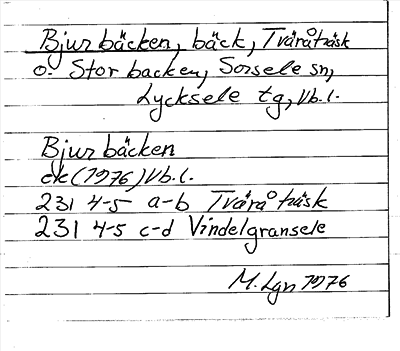 Bjurbäcken, bäck, Tväråträsk
o. Storbacken, Sorsele sn,
Lycksele tg, Vb.l.
Bjurbäcken
ek (1976) Vb.l.
231 4-5 a-b Tväråträsk
231 4-5 c-d Vindelgransele
M. Lgn 1976